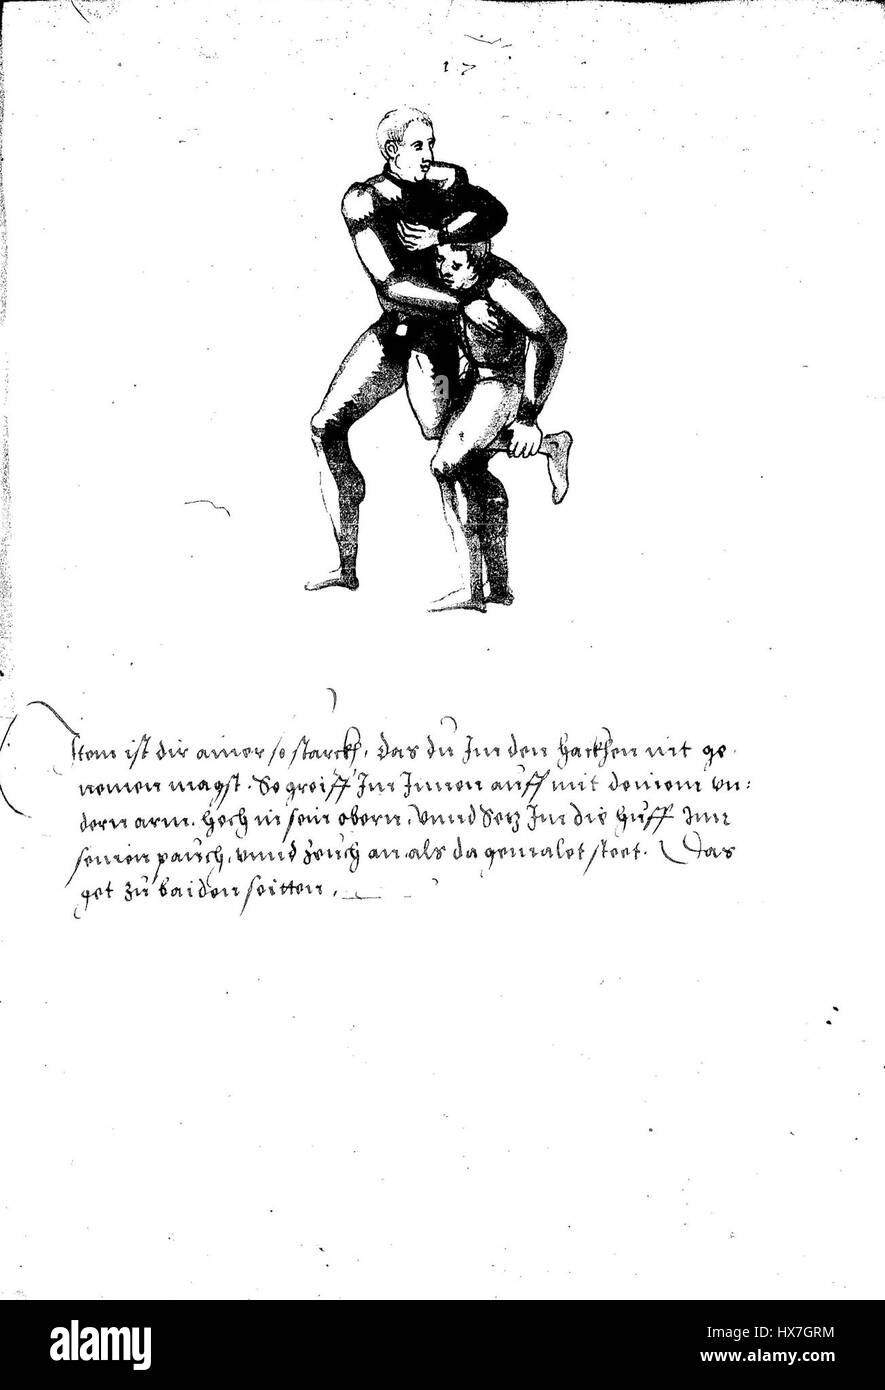 17
Item ist dir ainer so starckh, das du Im den hackhen nit ge-
nemen magst. So greiff Im Innen auff mit deinem un:
dern arm. hoch in sein obern, Unnd Setz Im die huff Inn
seinen pauch, unnd zeuch an als da gemalet steet. Das
get zu baiden seitten.
a
alamy
Image ID: HX7GRM
www.alamy.com